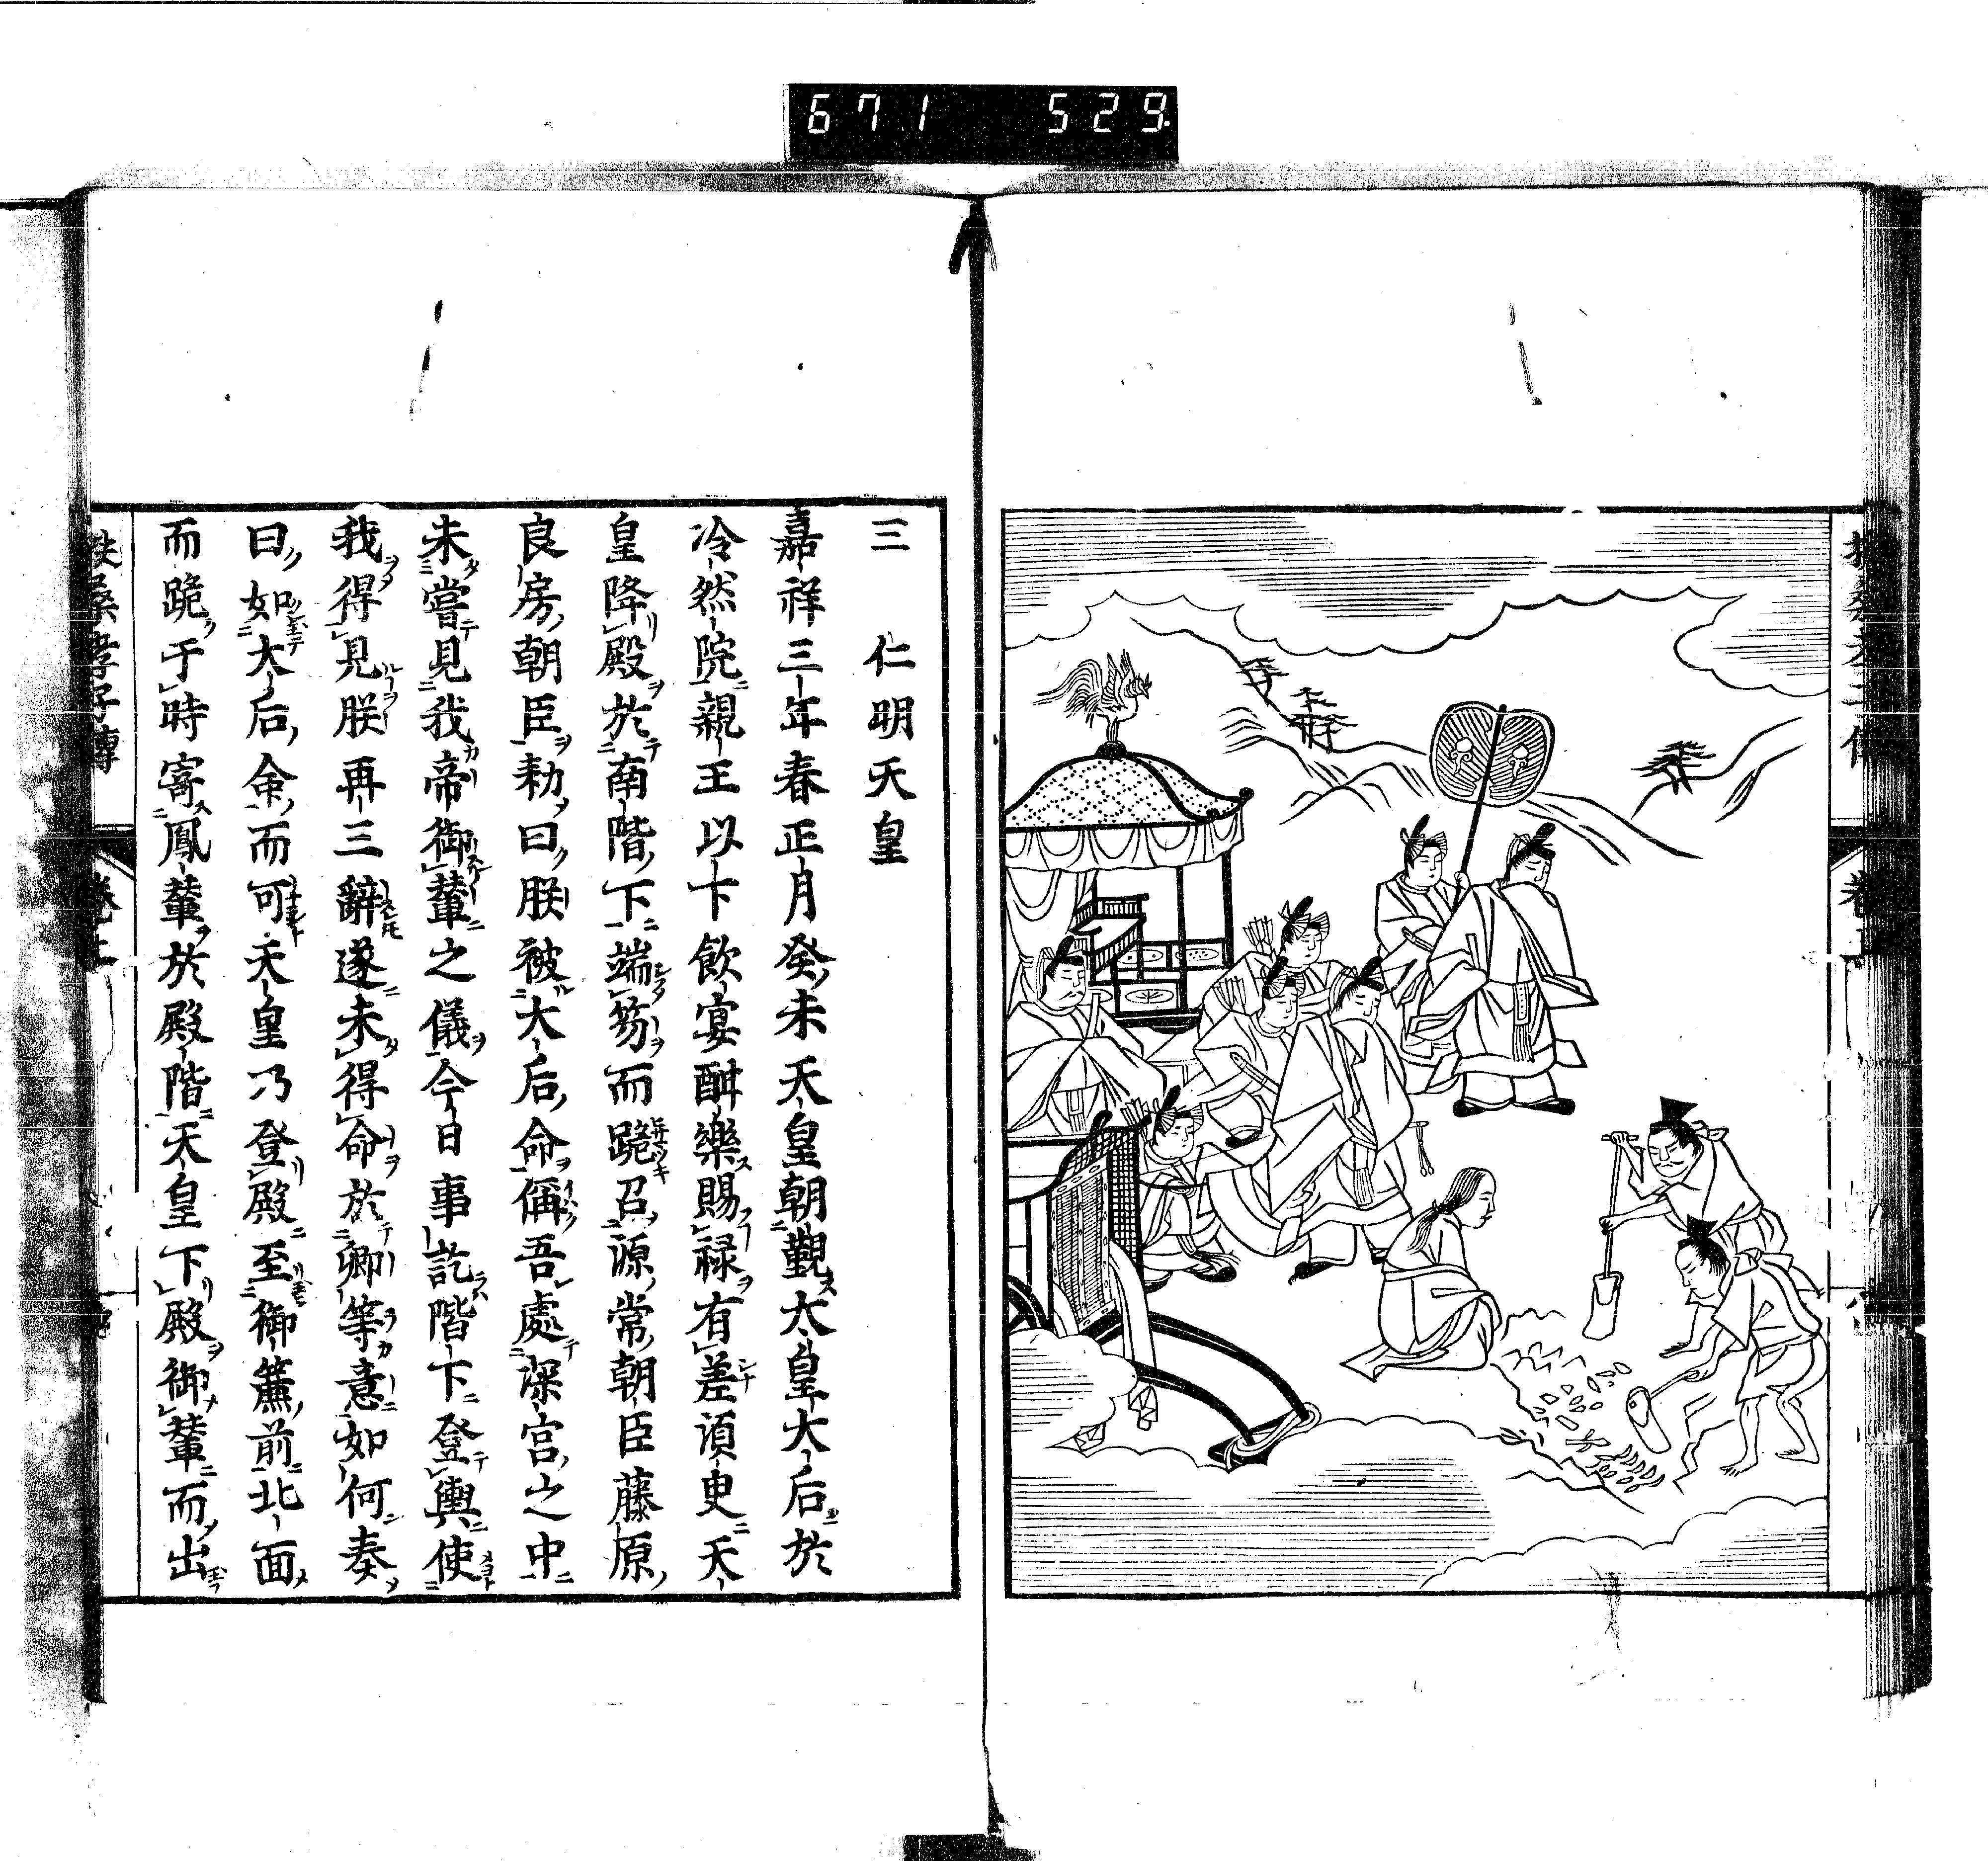 671 529
三 仁明天皇
嘉祥三年春正月癸未天皇朝覲太皇大后於
冷然院親王以下飲宴酣樂賜祿有差須臾天
皇降殿於南階下端笏而跪召源常朝臣藤原
良房朝臣勅曰朕被大后命偁吾處深宮之中
未嘗見我帝御輦之儀今日事訖階下登輿使
我得見朕再三辭遂未得命於卿等意如何奏
曰如大后命而可天皇乃登殿至御簾前北面
而跪于時寄鳳輦於殿階天皇下殿御輦而出
扶桑孝子傳